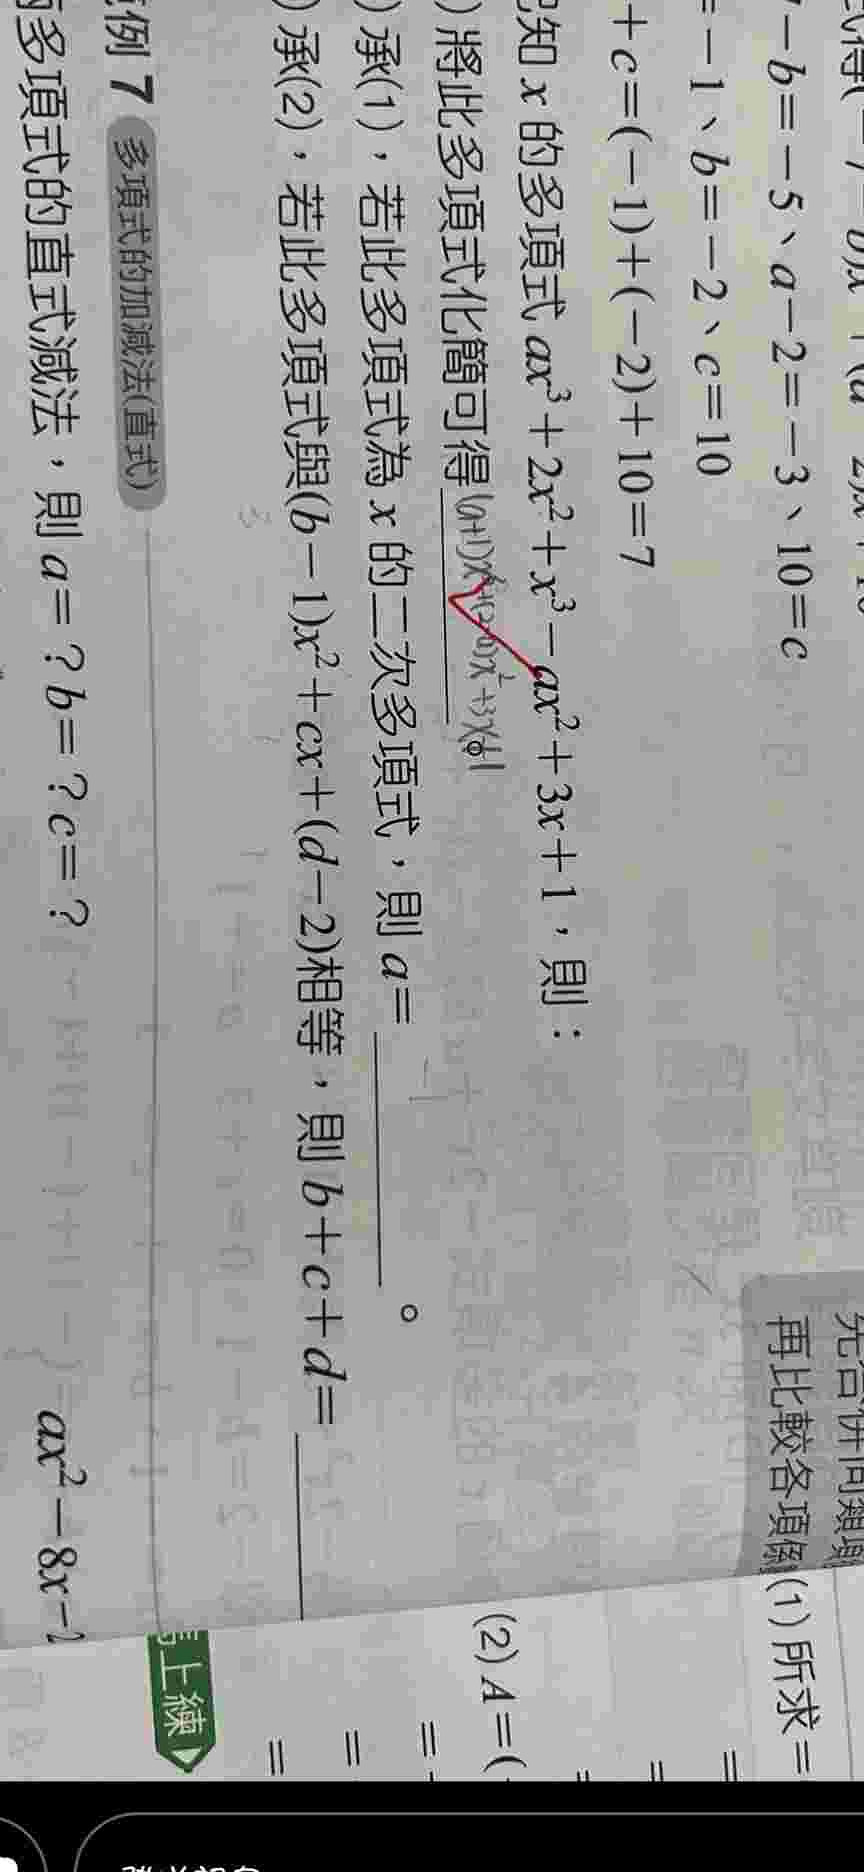 －b＝－5、a－2＝－3、10＝c
＝－1、b＝－2、c＝10
＋c＝(－1)＋(－2)＋10＝7
知 x 的多項式 ax³＋2x²＋x³－ax²＋3x＋1，則：
) 將此多項式化簡可得(a+1)x³+(2-a)x²+3x+1。
) 承(1)，若此多項式為 x 的二次多項式，則 a＝ -1 。
) 承(2)，若此多項式與(b－1)x²＋cx＋(d－2)相等，則 b＋c＋d＝
例 7 多項式的加減法(直式)
多項式的直式減法，則 a＝？b＝？c＝？
ax²－8x－
再比較各項係
(1) 所求＝
(2) A＝(
＝
＝
＝
＝
＝
上練